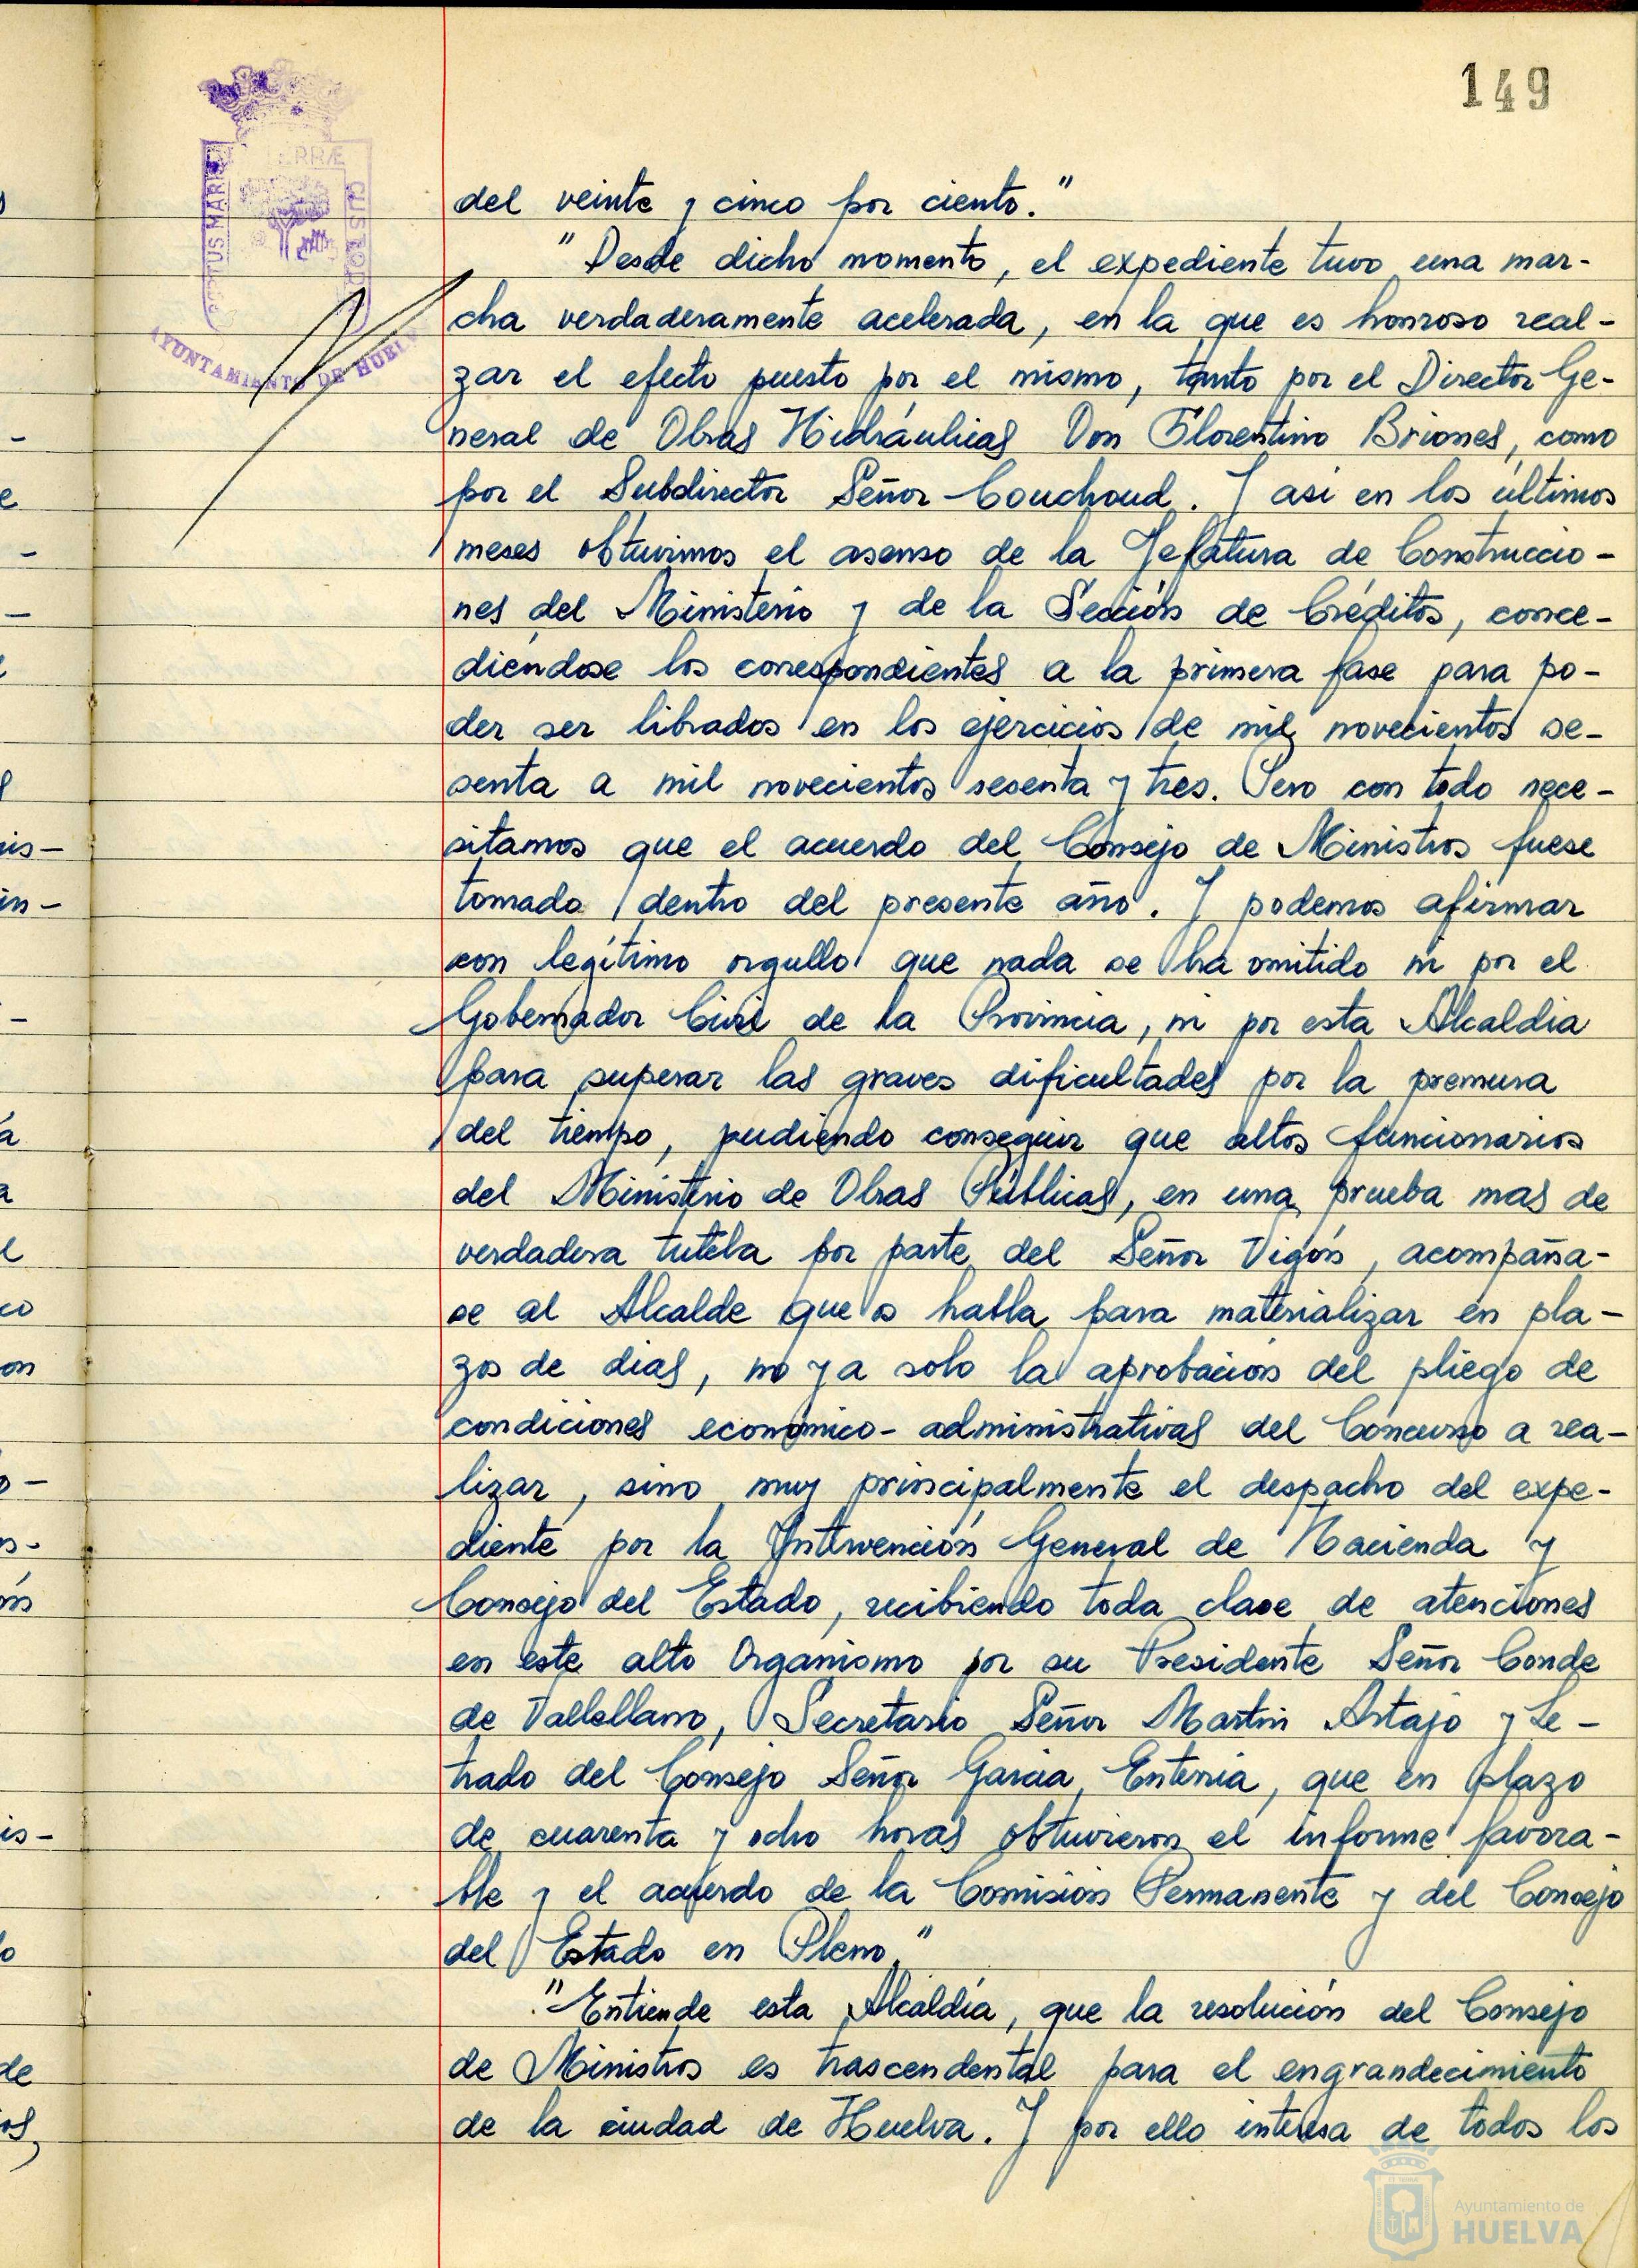 149
PORTUS MARIS
TERRÆ
CUSTODIA
AYUNTAMIENTO DE HUELVA
del veinte y cinco por ciento."
"Desde dicho momento, el expediente tuvo una mar-
cha verdaderamente acelerada, en la que es honroso real-
zar el efecto puesto por el mismo, tanto por el Director Ge-
neral de Obras Hidráulicas Don Florentino Briones, como
por el Subdirector Señor Couchoud. Y asi en los últimos
meses obtuvimos el asenso de la Jefatura de Construccio-
nes del Ministerio y de la Sección de Créditos, conce-
diéndose los correspondientes a la primera fase para po-
der ser librados en los ejercicios de mil novecientos se-
senta a mil novecientos sesenta y tres. Pero con todo nece-
sitamos que el acuerdo del Consejo de Ministros fuese
tomado dentro del presente año. Y podemos afirmar
con legítimo orgullo que nada se ha omitido ni por el
Gobernador Civil de la Provincia, ni por esta Alcaldia
para superar las graves dificultades por la premura
del tiempo, pudiendo conseguir que altos funcionarios
del Ministerio de Obras Públicas, en una prueba mas de
verdadera tutela por parte del Señor Vigón, acompaña-
se al Alcalde que os habla para materializar en pla-
zos de dias, no ya solo la aprobación del pliego de
condiciones económico-administrativas del Concurso a rea-
lizar, sino muy principalmente el despacho del expe-
diente por la Intervención General de Hacienda y
Consejo del Estado, recibiendo toda clase de atenciones
en este alto Organismo por su Presidente Señor Conde
de Vallellano, Secretario Señor Martin Artajo y Le-
trado del Consejo Señor Garcia Enterria, que en plazo
de cuarenta y ocho horas obtuvieron el informe favora-
ble y el acuerdo de la Comisión Permanente y del Consejo
del Estado en Pleno."
"Entiende esta Alcaldía, que la resolución del Consejo
de Ministros es trascendental para el engrandecimiento
de la ciudad de Huelva. Y por ello interesa de todos los
Ayuntamiento de
HUELVA